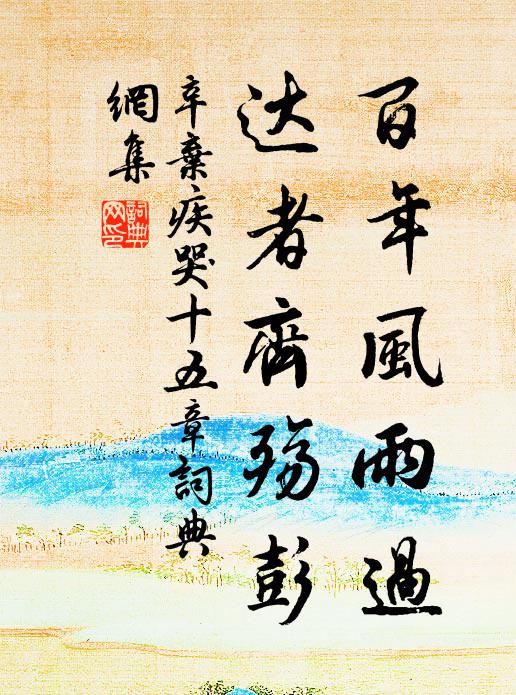 百年風雨過
达者齊殤彭
辛棄疾哭十五章詞典
網集
詞典
网印